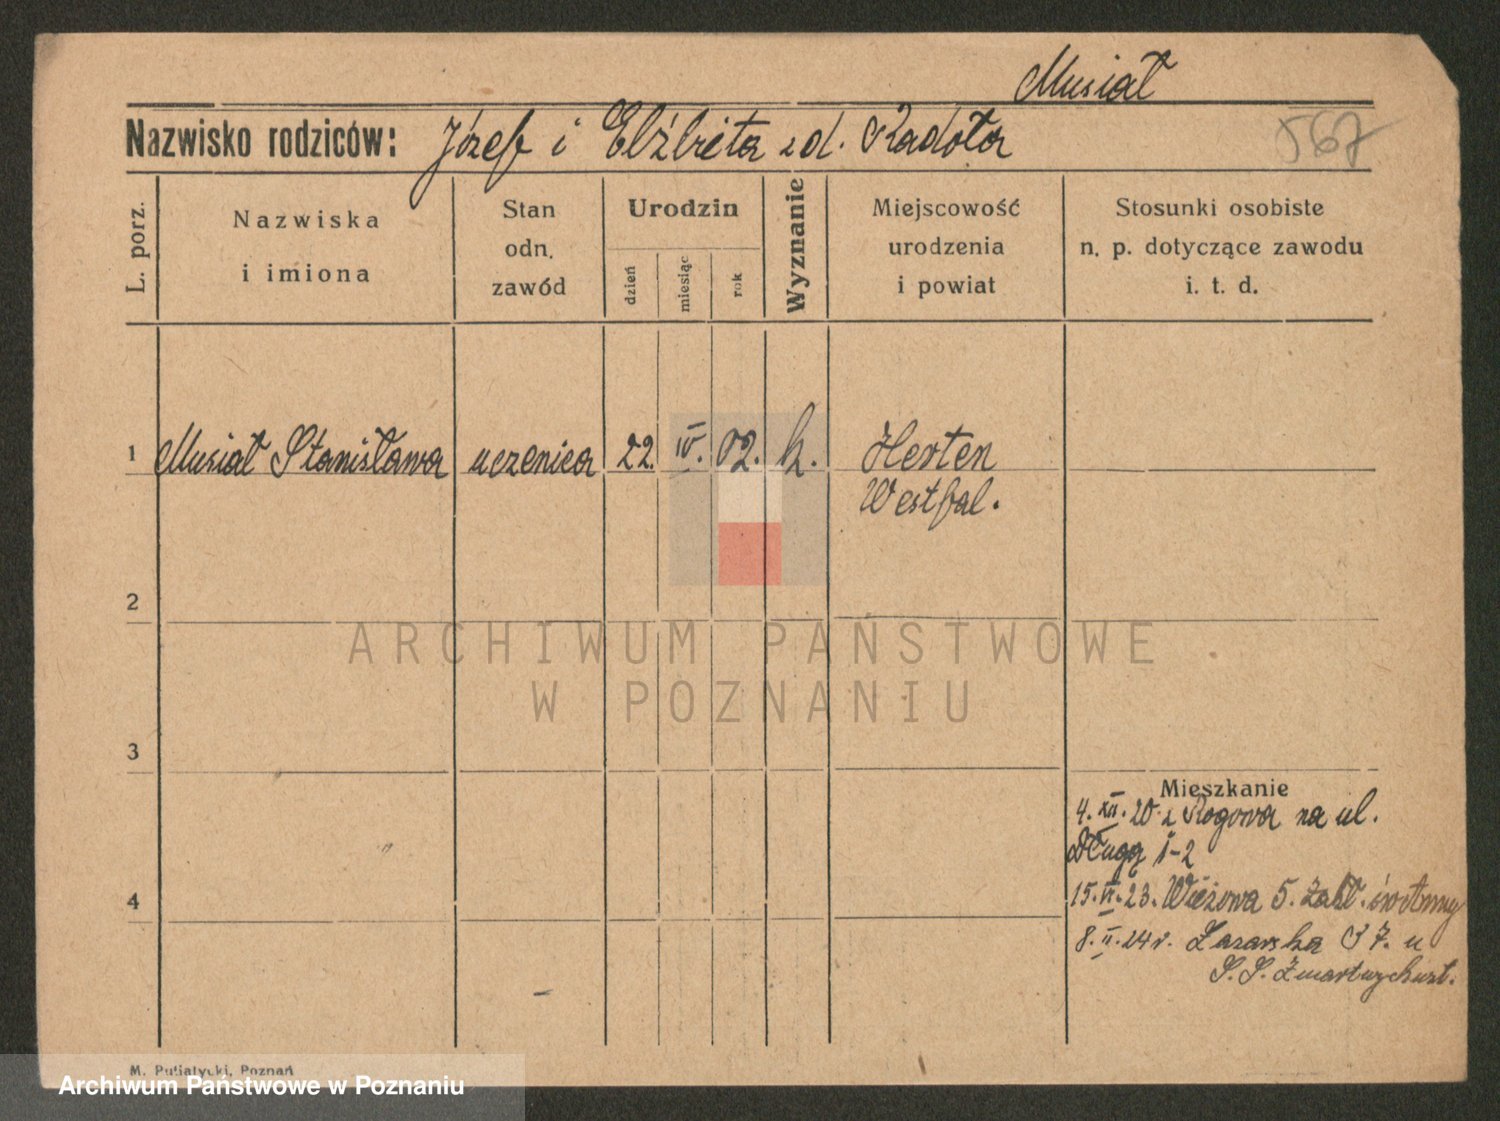 Musiał
Nazwisko rodziców: Józef i Elżbieta zd. Radoła
567
L. porz.
Nazwiska
i imiona
Stan
odn.
zawód
Urodzin
dzień
miesiąc
rok
Wyznanie
Miejscowość
urodzenia
i powiat
Stosunki osobiste
n. p. dotyczące zawodu
i. t. d.
1 Musiał Stanisława uczenica 22. IV. 02. k. Herten
Westfal.
2
3
4
ARCHIWUM PAŃSTWOWE
W POZNANIU
Mieszkanie
4. XII. 20 z Rogowa na ul.
Długą 1-2
15. VI. 23. Wieżowa 5. Zakł. św Anny
8. II. 24 r. 7. u
S. S. Zmartwychwst.
M. Putiatycki, Poznań
Archiwum Państwowe w Poznaniu